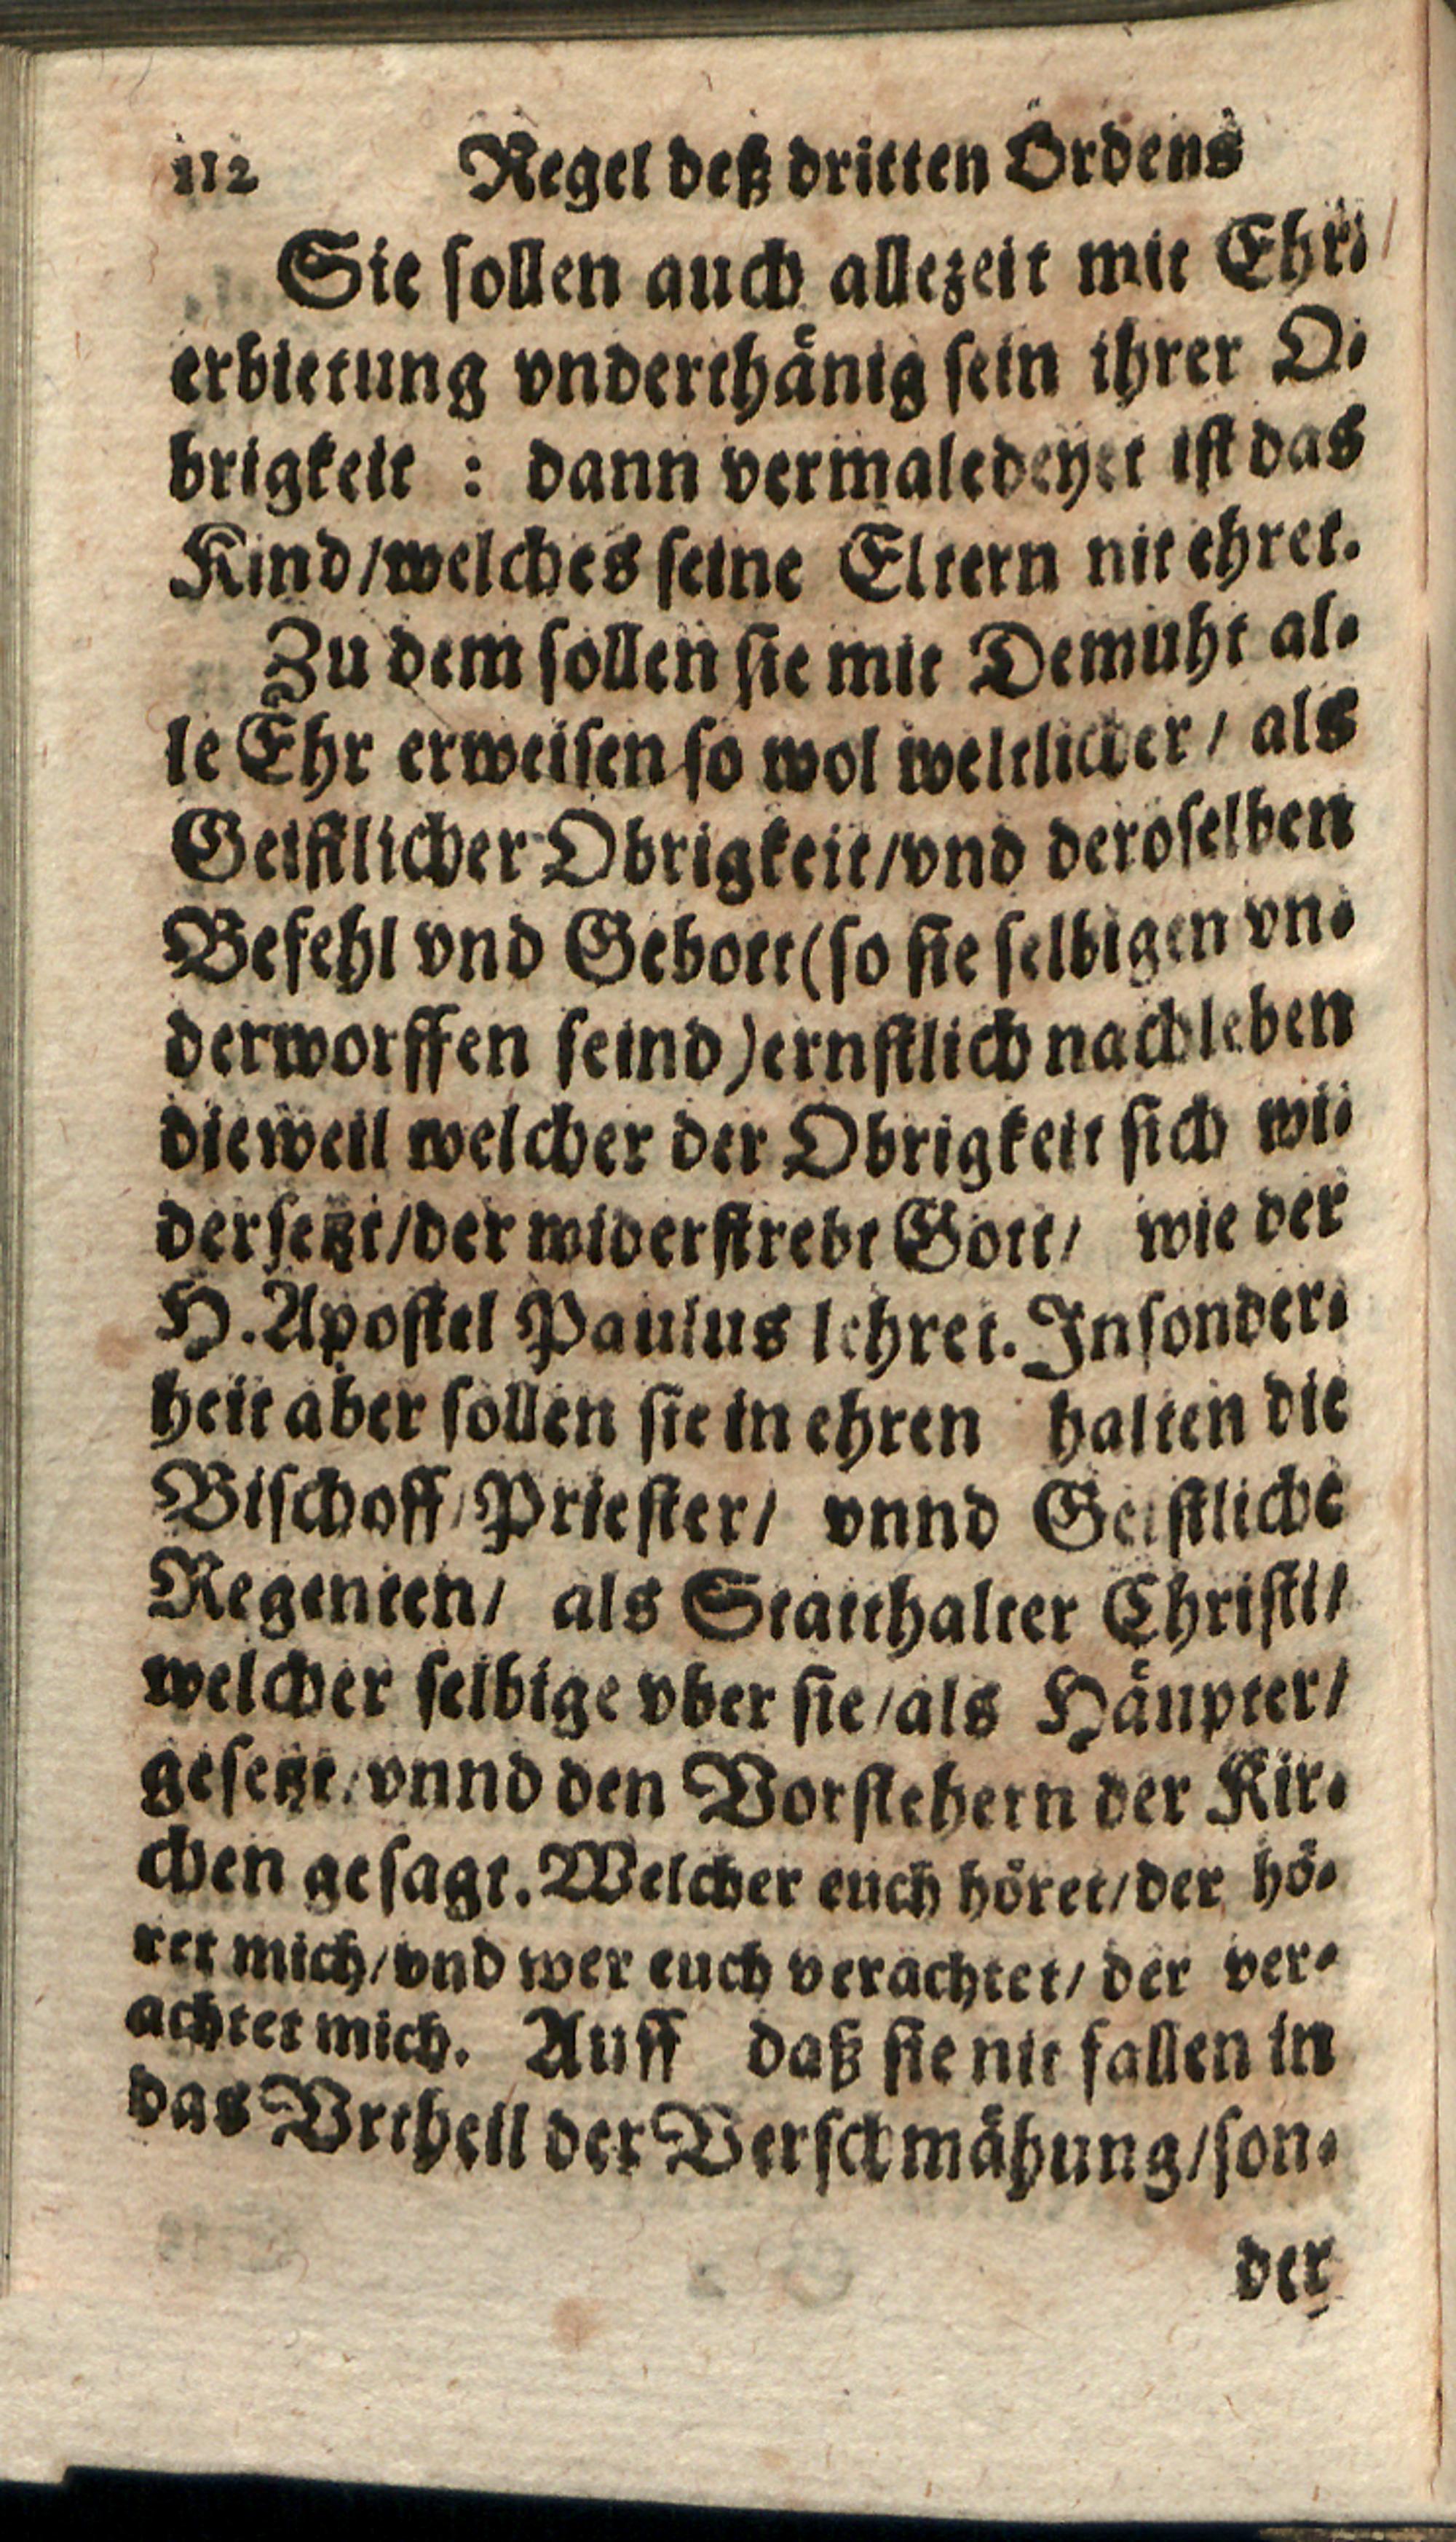 112 Regel deß dritten Ordens
Sie sollen auch allezeit mit Ehr-
erbietung vnderthänig sein ihrer O-
brigkeit : dann vermaledeyet ist das
Kind/welches seine Eltern nit ehret.
Zu dem sollen sie mit Demuht al-
le Ehr erweisen so wol weltlicher / als
Geistlicher Obrigkeit/vnd deroselben
Befehl vnd Gebott(so sie selbigen vn-
derworffen seind)ernstlich nachleben
dieweil welcher der Obrigkeit sich wi-
dersetzt/der widerstrebt Gott/ wie der
H.Apostel Paulus lehret. Insonder-
heit aber sollen sie in ehren halten die
Bischoff/Priester/ vnnd Geistliche
Regenten/ als Statthalter Christi/
welcher selbige vber sie/als Häupter/
gesetzt/vnnd den Vorstehern der Kir-
chen gesagt. Welcher euch höret/der hö-
ret mich/vnd wer euch verachtet/ der ver-
achtet mich. Auff daß sie nit fallen in
das Vrtheil der Verschmähung/son-
der